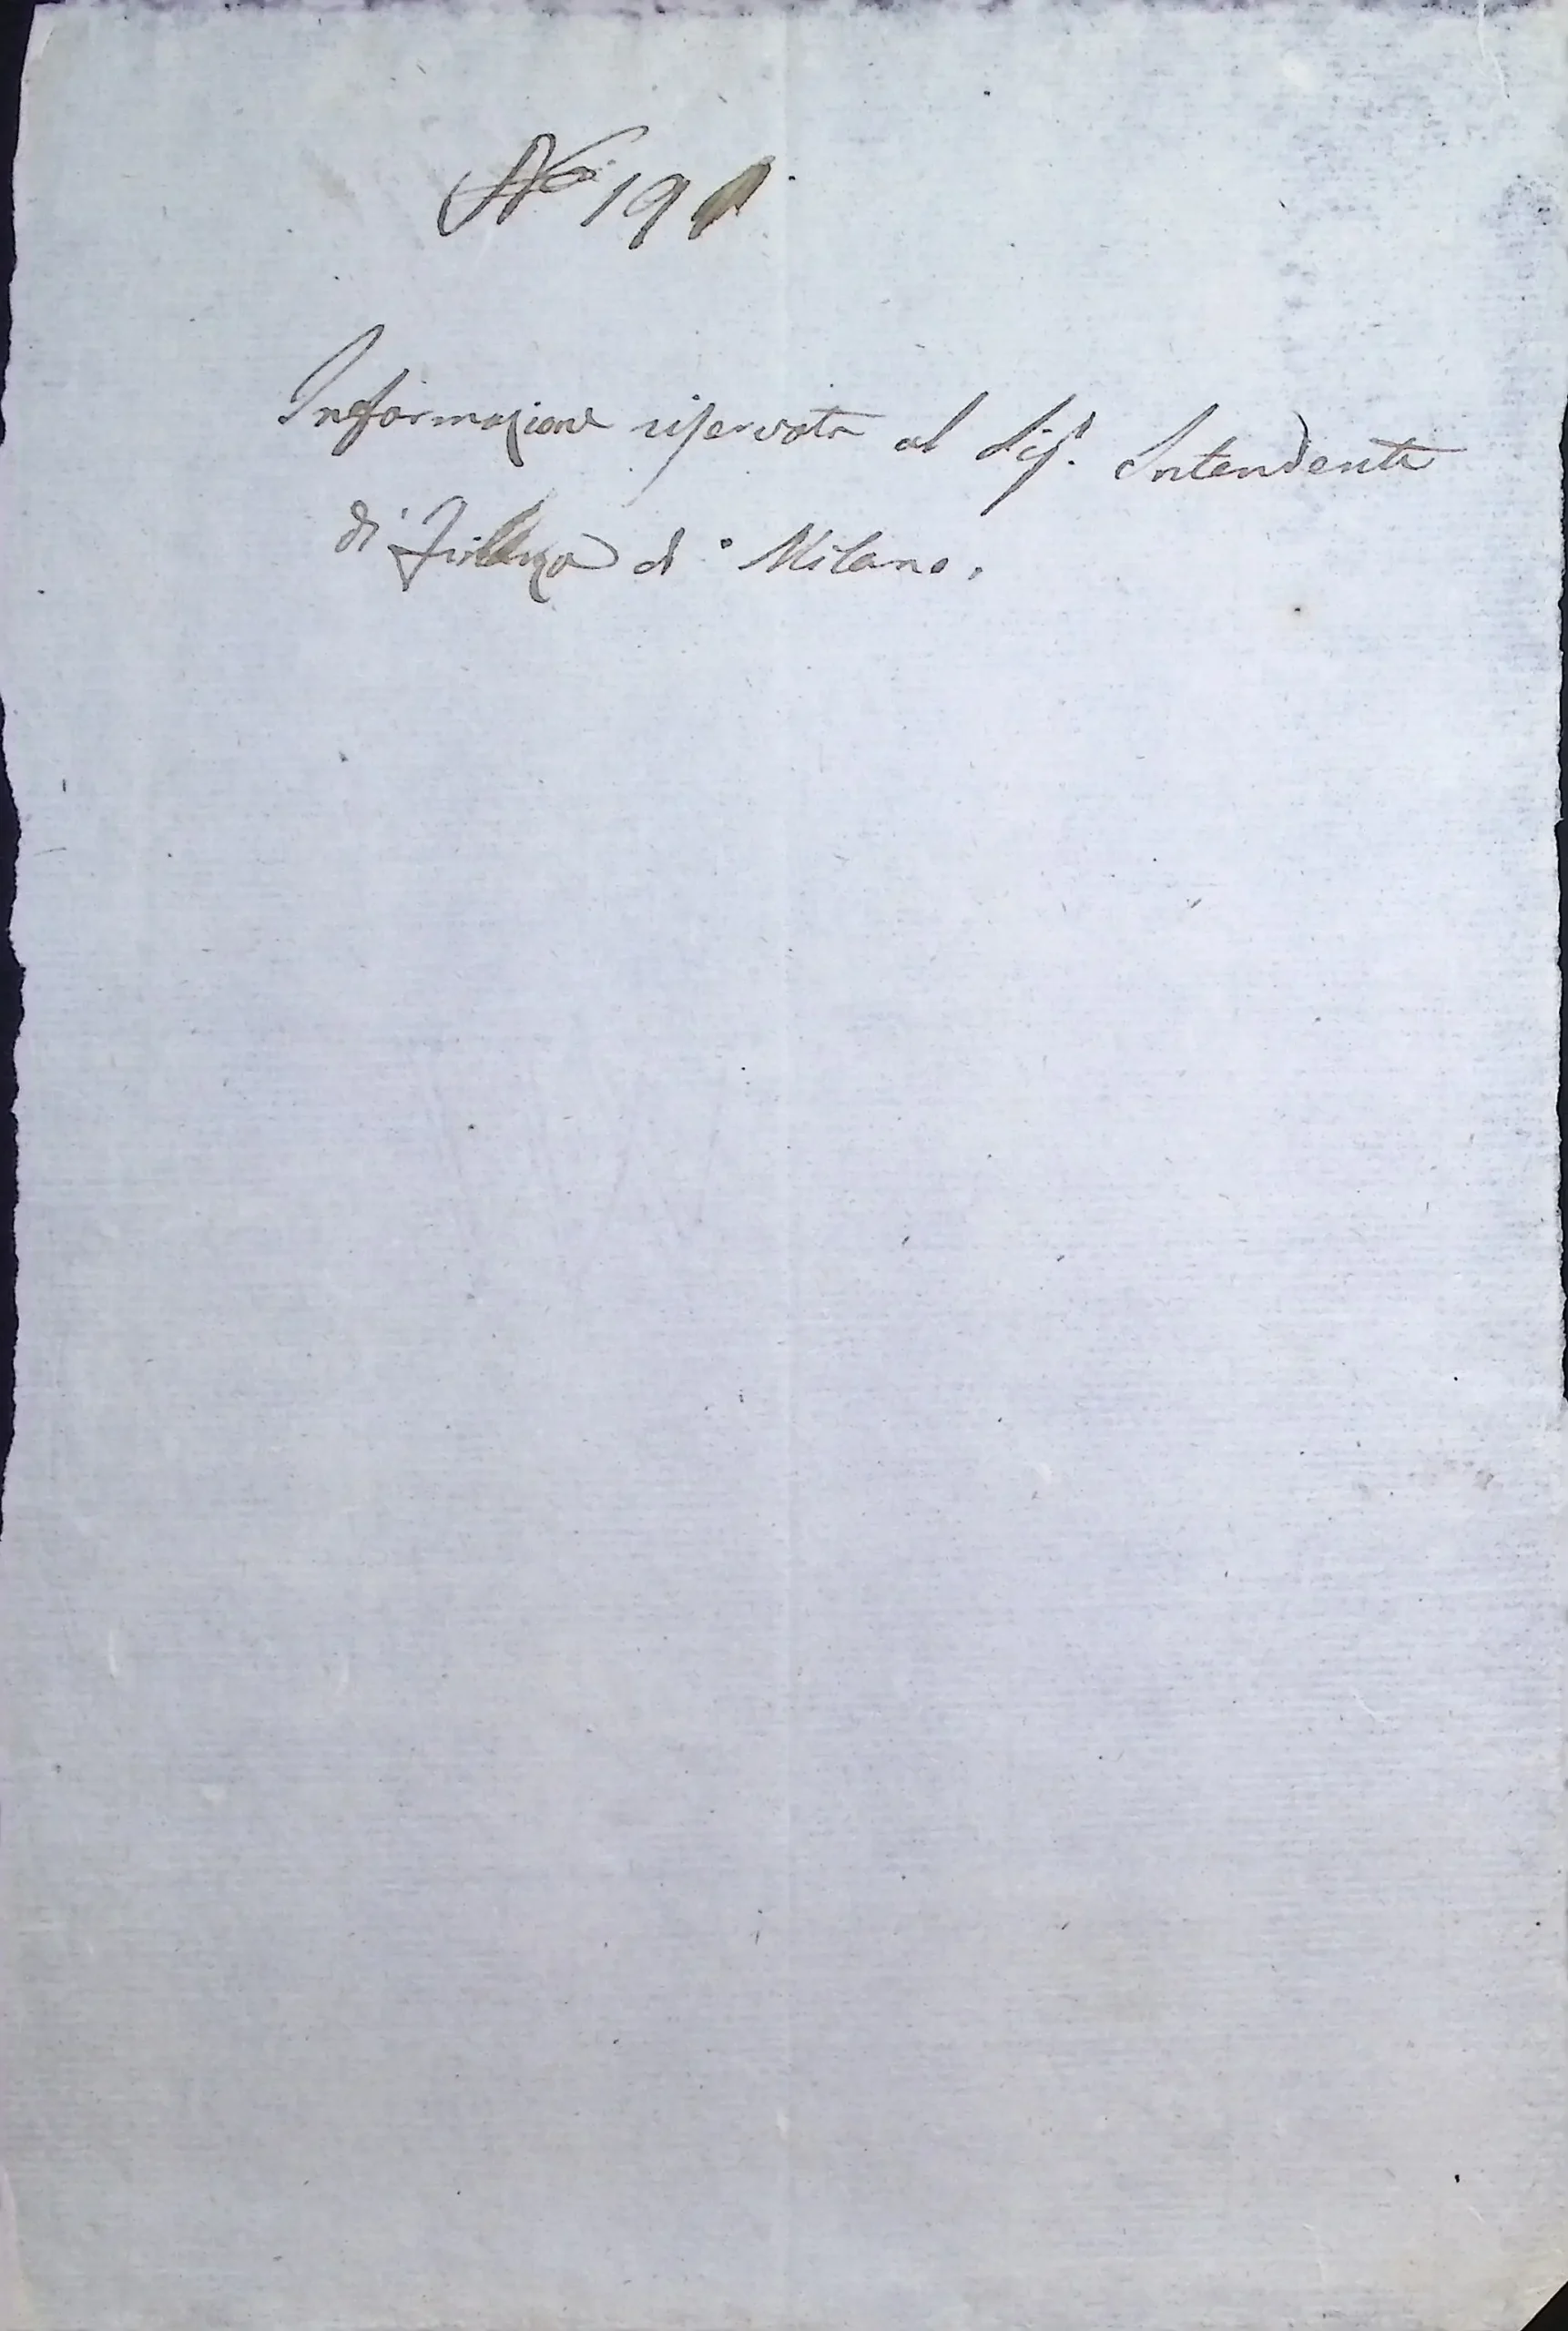 No. 19
Informazione riservata al Sigr. Intendente
di Finanza di Milano.